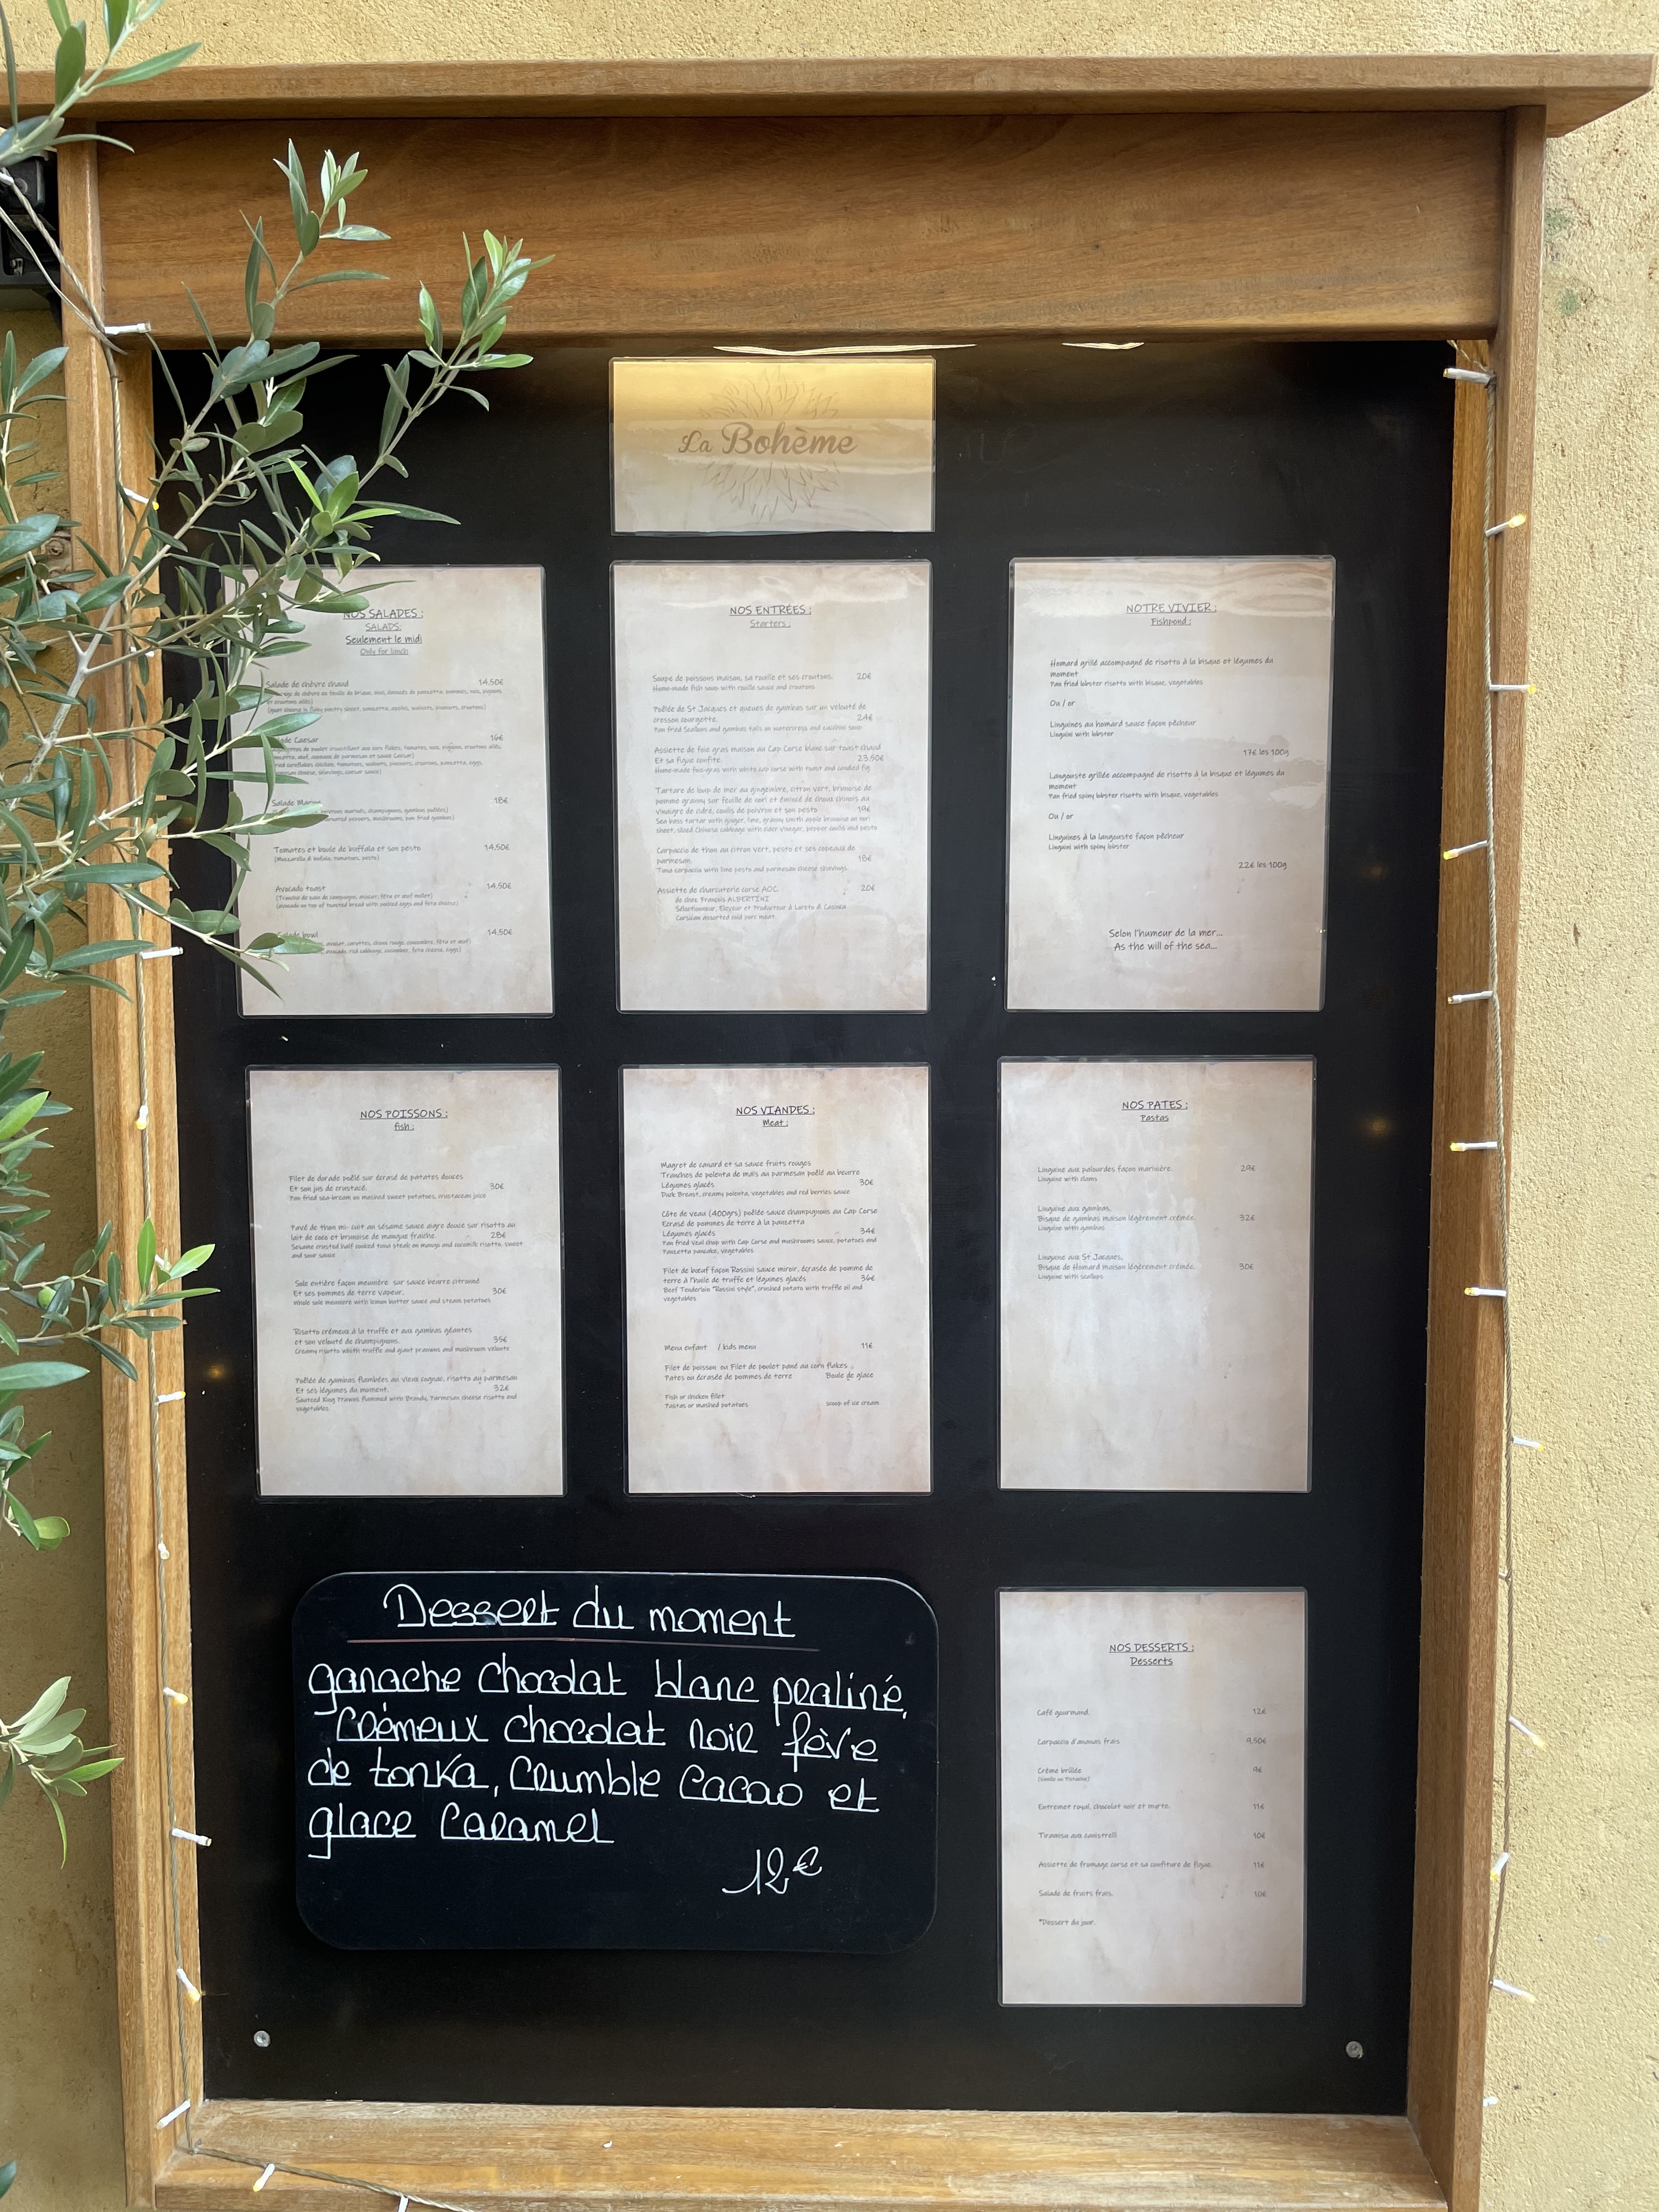 La Bohème
NOS SALADES :
SALADS:
Seulement le midi
Only for lunch
Salade de chèvre chaud 14.50€
et croutons aillés)
Caesar 16€
Salade 18€
Tomates et boule de buffala et son pesto 14,50€
(Mozzarella di bufala, tomatoes, pesto)
Avocado toast 14.50€
bowl 14,50€
NOS ENTRÉES :
Starters :
Soupe de poissons maison, sa rouille et ses croutons. 20€
Home-made fish soup with rouille sauce and croutons
Poêlée de St Jacques et queues de gambas sur un velouté de
cresson courgette. 24€
Pan fried Scallops and gambas tails on watercress and zucchini soup
Assiette de foie gras maison au Cap Corse blanc sur toast chaud
Et sa figue confite. 23.50€
Home-made foie-gras with white cap corse with toast and candied fig
Tartare de loup de mer au gingembre, citron vert, brunoise de
pomme granny sur feuille de nori et émincé de choux chinois au
vinaigre de cidre, coulis de poivron et son pesto 19€
Sea bass tartar with ginger, lime, granny smith apple brunoise on nori
sheet, sliced Chinese cabbage with cider vinegar, pepper coulis and pesto
Carpaccio de thon au citron vert, pesto et ses copeaux de
parmesan. 18€
Tuna carpaccio with lime pesto and parmesan cheese shavings
Assiette de charcuterie corse AOC 20€
de chez François ALBERTINI
Sélectionneur, Eleveur et Producteur à Loreto di Casinca
Corsican assorted cold porc meat.
NOTRE VIVIER :
Fishpond :
Homard grillé accompagné de risotto à la bisque et légumes du
moment
Pan fried lobster risotto with bisque, vegetables
Ou / or
Linguines au homard sauce façon pêcheur
Linguini with lobster
17€ les 100g
Langouste grillée accompagné de risotto à la bisque et légumes du
moment
Pan fried spiny lobster risotto with bisque, vegetables
Ou / or
Linguines à la langouste façon pêcheur
Linguini with spiny lobster
22€ les 100g
Selon l'humeur de la mer...
As the will of the sea...
NOS POISSONS :
fish :
Filet de dorade poêlé sur écrasé de patates douces
Et son jus de crustacé. 30€
Pan fried sea-bream on mashed sweet potatoes, crustacean juice
Pavé de thon mi- cuit au sésame sauce aigre douce sur risotto au
lait de coco et brunoise de mangue fraiche. 28€
Sesame crusted half cooked tuna steak on mango and coconut milk risotto, sweet
and sour sauce
Sole entière façon meunière sur sauce beurre citronné
Et ses pommes de terre vapeur. 30€
Whole sole meuniere with lemon butter sauce and steam potatoes
Risotto crémeux à la truffe et aux gambas géantes
et son velouté de champignons. 35€
Creamy risotto whith truffle and giant prawns and mushroom velouté
Poêlée de gambas flambées au vieux cognac, risotto au parmesan
Et ses légumes du moment. 32€
Sauteed King Prawns flammed with Brandy, Parmesan cheese risotto and
vegetables.
NOS VIANDES :
Meat :
Magret de canard et sa sauce fruits rouges
Tranches de polenta de maïs au parmesan poêlé au beurre
Légumes glacés 30€
Duck Breast, creamy polenta, vegetables and red berries sauce
Côte de veau (400grs) poêlée sauce champignons au Cap Corse
Ecrasé de pommes de terre à la panzetta
Légumes glacés 34€
Pan fried Veal chop with Cap Corse and mushrooms sauce, potatoes and
Panzetta pancake, vegetables
Filet de bœuf façon Rossini sauce miroir, écrasée de pomme de
terre à l'huile de truffe et légumes glacés 36€
Beef Tenderloin "Rossini style", crushed potato with truffle oil and
vegetables
Menu enfant / kids menu 11€
Filet de poisson ou Filet de poulet pané au corn flakes
Pates ou écrasée de pommes de terre Boule de glace
Fish or chicken fillet
Pastas or mashed potatoes scoop of ice cream
NOS PATES :
Pastas
Linguine aux palourdes façon marinière. 29€
Linguine with clams
Linguine aux gambas,
Bisque de gambas maison légèrement crémée. 32€
Linguine with gambas
Linguine aux St Jacques,
Bisque de Homard maison légèrement crémée. 30€
Linguine with scallops
Dessert du moment
ganache chocolat blanc praliné,
Crémeux chocolat noir fève
de tonka, Crumble Cacao et
glace Caramel
12€
NOS DESSERTS :
Desserts
Café gourmand. 12€
Carpaccio d'ananas frais 9,50€
Crème brûlée 9€
(Vanille ou Pistache)
Entremet royal, chocolat noir et myrte. 11€
Tiramisu aux canistrelli 10€
Assiette de fromage corse et sa confiture de figue. 11€
Salade de fruits frais. 10€
*Dessert du jour.